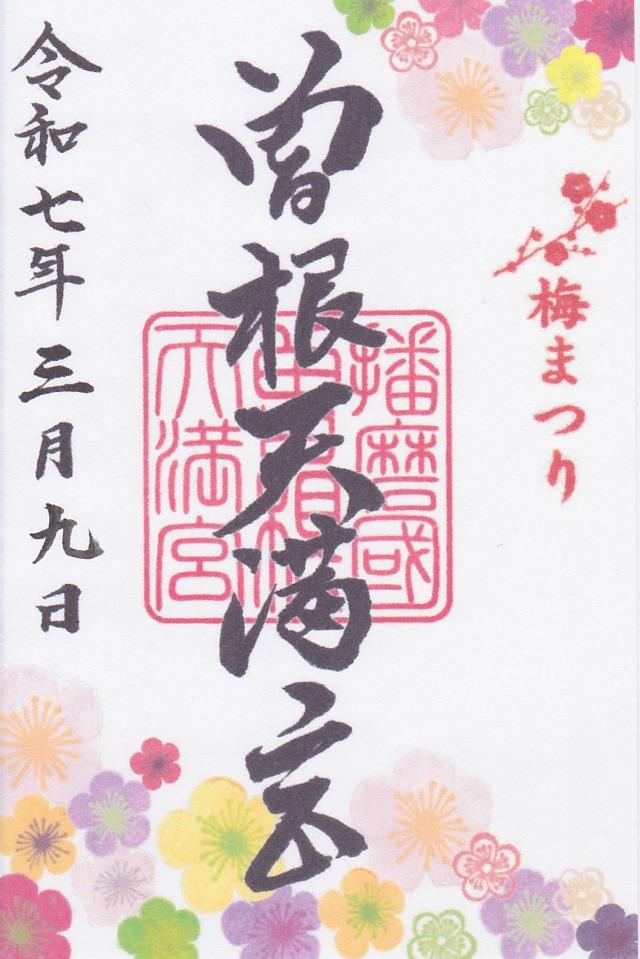 梅まつり
曽根天満宮
播磨國
曽根
天満宮
令和七年三月九日